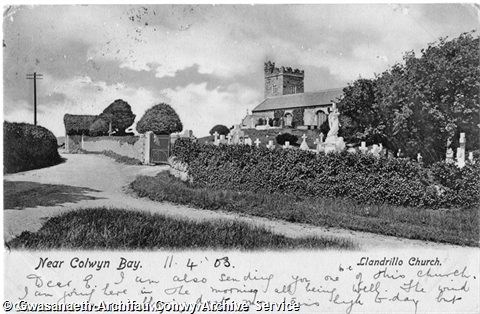 Near Colwyn Bay. 11.4.03. Llandrillo Church.
Dear E. I am also sending you one of this church.
I am going here in the morning all being well. The wind
high to-day but
© Gwasanaeth Archifau Conwy Archive Service